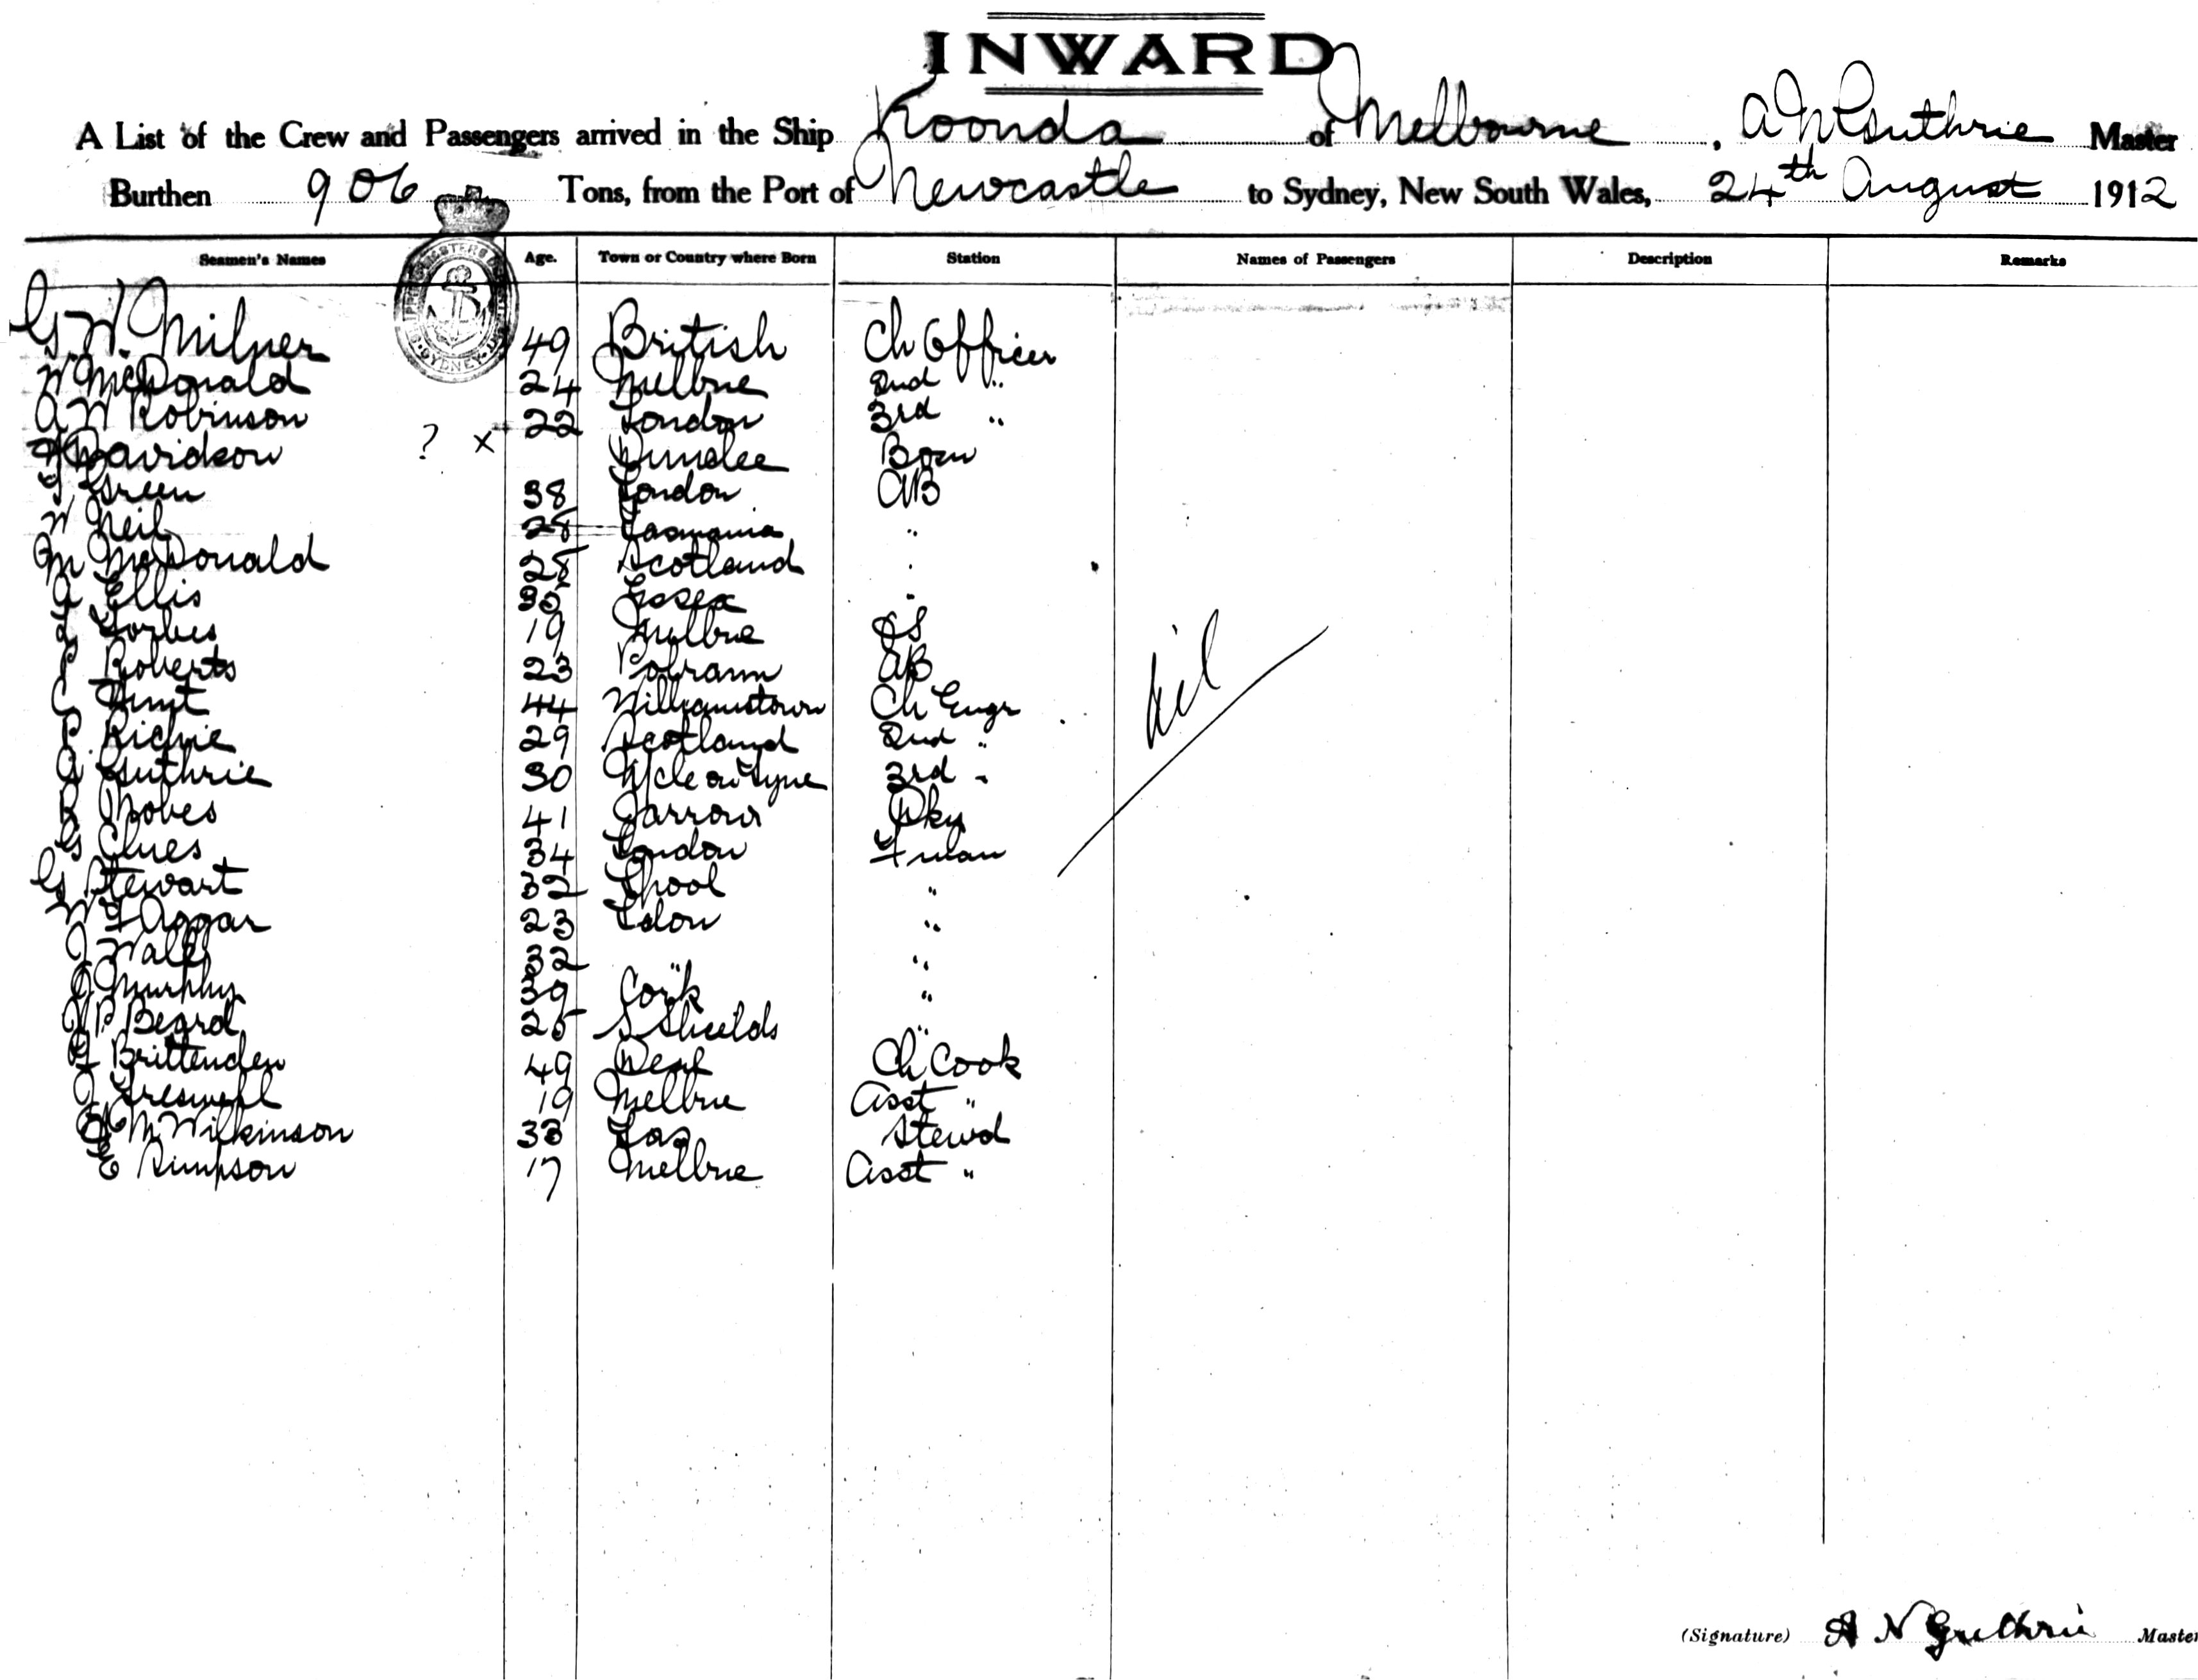 INWARD
A List of the Crew and Passengers arrived in the Ship Koonda of Melbourne, A N Guthrie Master
Burthen 906 Tons, from the Port of Newcastle to Sydney, New South Wales, 24th August 1912
Seamen's Names Age. Town or Country where Born Station Names of Passengers Description Remarks
G. W. Milner 49 British Ch Officer
W McDonald 24 Melbne 2nd "
A W Robinson 22 London 3rd "
Davidson ? x Dundee Bosn
Green 38 London AB
W Neil 28 Tasmania "
M McDonald 28 Scotland "
A Ellis 35 Essex "
Forbes 19 Melbne OS
P Roberts 23 AB
C Hunt 44 Williamstown Ch Engr
P. Richie 29 Scotland 2nd "
A Guthrie 30 N'cle on Tyne 3rd "
R Nobes 41 Jarrow Dky
G Clues 34 London Fman
G Stewart 32 L'pool "
W F Aggar 23 Ldon "
J Wale 32 " "
J Murphy 39 Cork "
J P Beard 25 S Shields "
Brittenden 49 Deal Ch Cook
J 19 Melbne Asst "
M Wilkinson 33 Tas Stewd
E Simpson 17 Melbne Asst "
Nil
(Signature) A N Guthrie Master